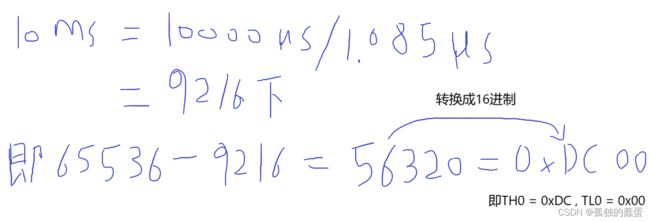 10ms = 10000μs/1.085μs
= 9216下
转换成16进制
即 65536-9216 = 56320 = 0xDC00
即TH0 = 0xDC , TL0 = 0x00
CSDN @孤独的蠢蛋